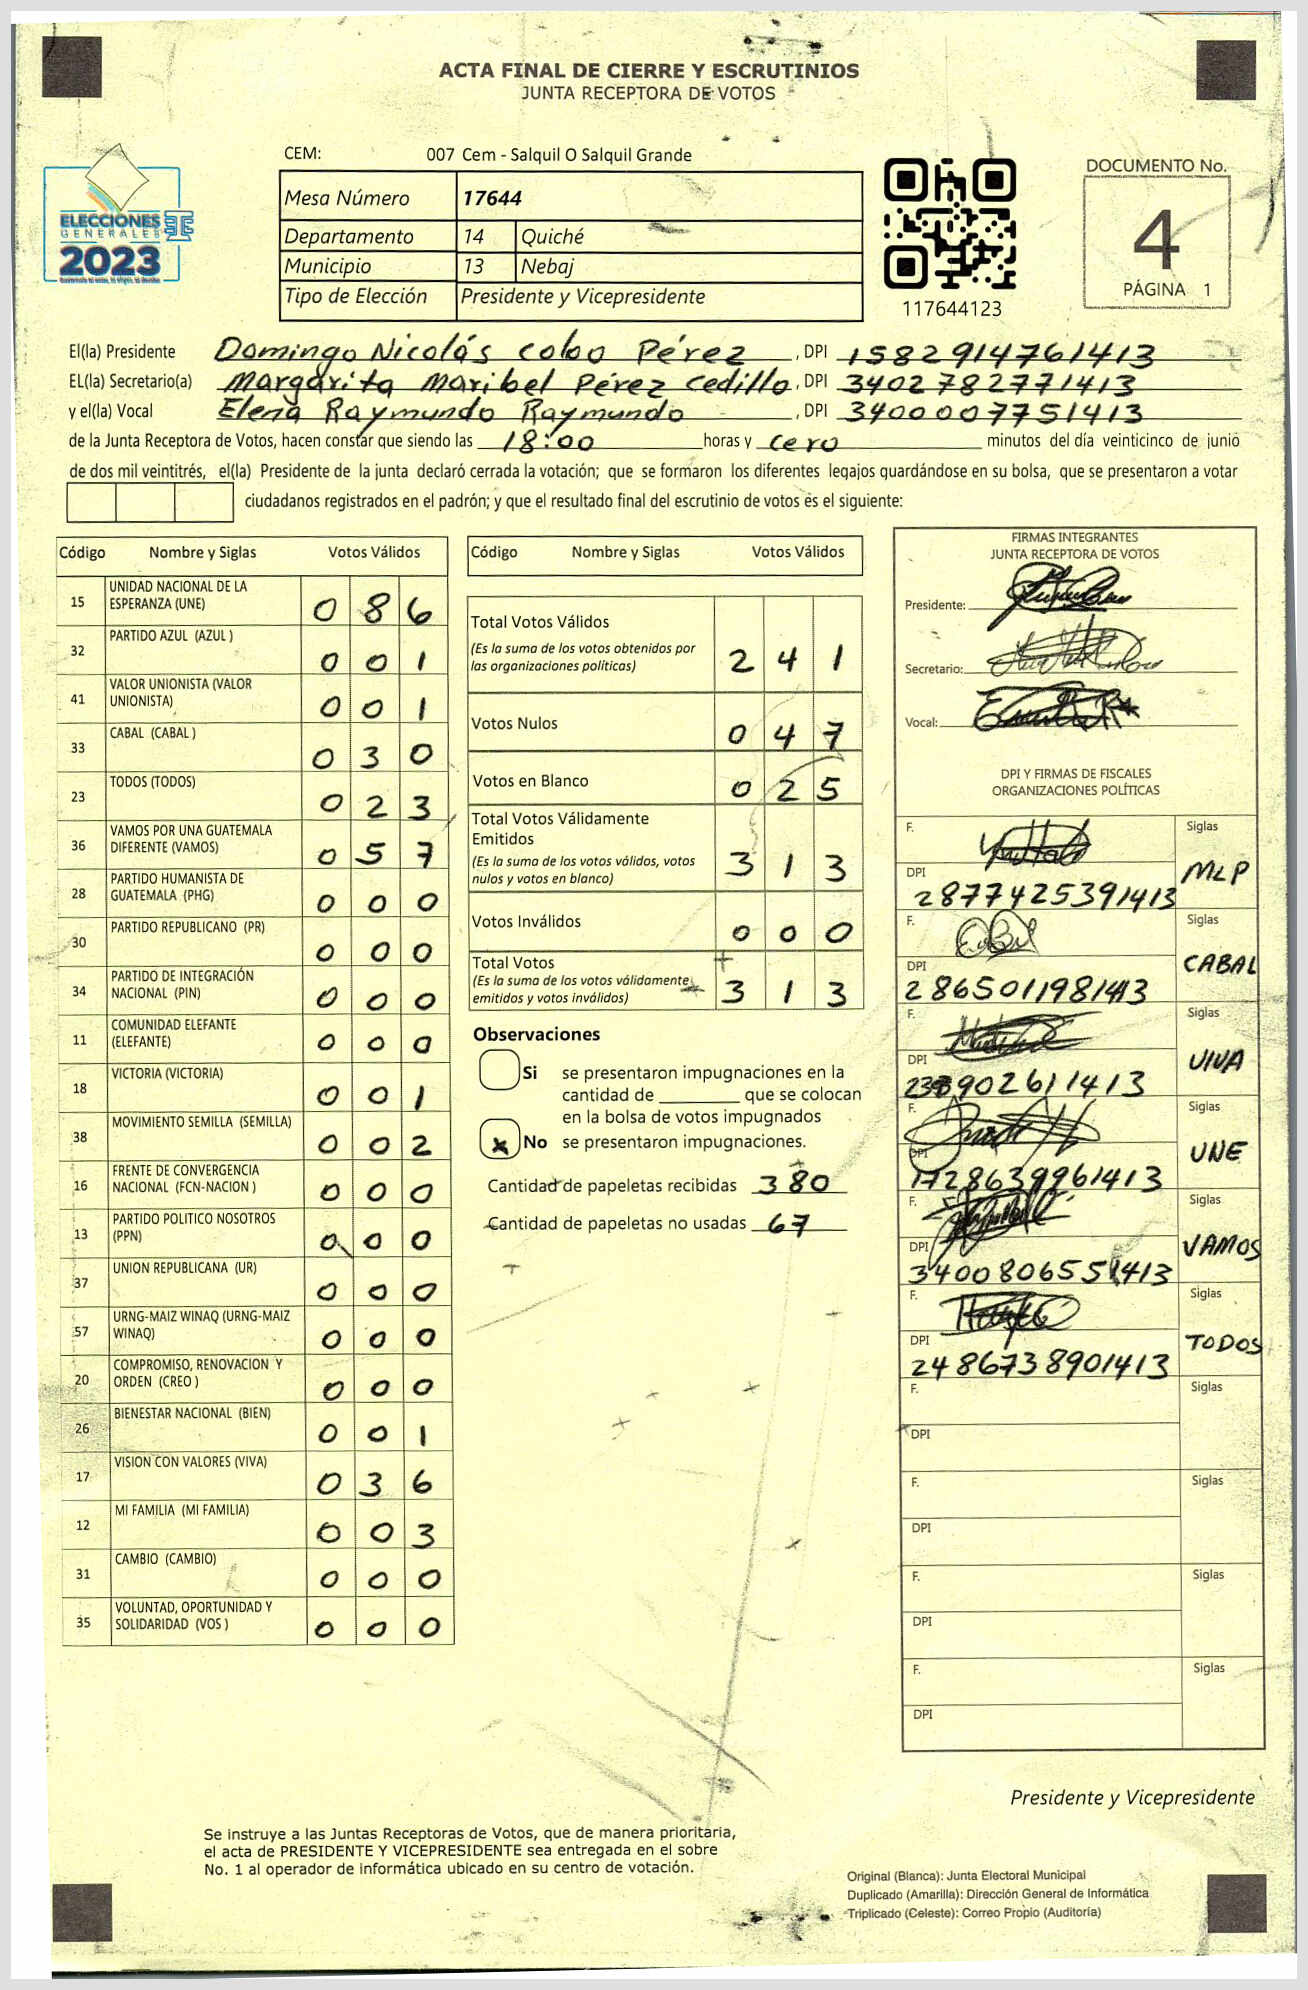 ACTA FINAL DE CIERRE Y ESCRUTINIOS
JUNTA RECEPTORA DE VOTOS
CEM: 007 Cem - Salquil O Salquil Grande
ELECCIONES
GENERALES
2023
Mesa Número 17644
Departamento 14 Quiché
Municipio 13 Nebaj
Tipo de Elección Presidente y Vicepresidente
117644123
DOCUMENTO No.
4
PÁGINA 1
El(la) Presidente Domingo Nicolás Cobo Pérez, DPI 1582914761413
EL(la) Secretario(a) Margarita Maribel Pérez Cedillo, DPI 3402782771413
y el(la) Vocal Elena Raymundo Raymundo, DPI 3400007751413
de la Junta Receptora de Votos, hacen constar que siendo las 18:00 horas y cero minutos del día veinticinco de junio
de dos mil veintitrés, el(la) Presidente de la junta declaró cerrada la votación; que se formaron los diferentes legajos quardándose en su bolsa, que se presentaron a votar
ciudadanos registrados en el padrón; y que el resultado final del escrutinio de votos es el siguiente:
Código Nombre y Siglas Votos Válidos
15 UNIDAD NACIONAL DE LA
ESPERANZA (UNE) 0 8 6
32 PARTIDO AZUL (AZUL ) 0 0 1
41 VALOR UNIONISTA (VALOR
UNIONISTA) 0 0 1
33 CABAL (CABAL ) 0 3 0
23 TODOS (TODOS) 0 2 3
36 VAMOS POR UNA GUATEMALA
DIFERENTE (VAMOS) 0 5 7
28 PARTIDO HUMANISTA DE
GUATEMALA (PHG) 0 0 0
30 PARTIDO REPUBLICANO (PR) 0 0 0
34 PARTIDO DE INTEGRACIÓN
NACIONAL (PIN) 0 0 0
11 COMUNIDAD ELEFANTE
(ELEFANTE) 0 0 0
18 VICTORIA (VICTORIA) 0 0 1
38 MOVIMIENTO SEMILLA (SEMILLA) 0 0 2
16 FRENTE DE CONVERGENCIA
NACIONAL (FCN-NACION ) 0 0 0
13 PARTIDO POLITICO NOSOTROS
(PPN) 0 0 0
37 UNION REPUBLICANA (UR) 0 0 0
57 URNG-MAIZ WINAQ (URNG-MAIZ
WINAQ) 0 0 0
20 COMPROMISO, RENOVACION Y
ORDEN (CREO ) 0 0 0
26 BIENESTAR NACIONAL (BIEN) 0 0 1
17 VISION CON VALORES (VIVA) 0 3 6
12 MI FAMILIA (MI FAMILIA) 0 0 3
31 CAMBIO (CAMBIO) 0 0 0
35 VOLUNTAD, OPORTUNIDAD Y
SOLIDARIDAD (VOS ) 0 0 0
Código Nombre y Siglas Votos Válidos
Total Votos Válidos
(Es la suma de los votos obtenidos por
las organizaciones políticas) 2 4 1
Votos Nulos 0 4 7
Votos en Blanco 0 2 5
Total Votos Válidamente
Emitidos
(Es la suma de los votos válidos, votos
nulos y votos en blanco) 3 1 3
Votos Inválidos 0 0 0
Total Votos
(Es la suma de los votos válidamente
emitidos y votos inválidos) 3 1 3
Observaciones
Si se presentaron impugnaciones en la
cantidad de ________ que se colocan
en la bolsa de votos impugnados
x No se presentaron impugnaciones.
Cantidad de papeletas recibidas 380
Cantidad de papeletas no usadas 67
FIRMAS INTEGRANTES
JUNTA RECEPTORA DE VOTOS
Presidente:
Secretario:
Vocal:
DPI Y FIRMAS DE FISCALES
ORGANIZACIONES POLÍTICAS
F. Siglas
DPI 2877425391413 MLP
F. Siglas
DPI 2865011981413 CABAL
F. Siglas
DPI VIVA
F. Siglas
DPI 1728639961413 UNE
F. Siglas
DPI 3400806551413 VAMOS
F. Siglas
DPI 2486738901413 TODOS
F. Siglas
DPI
F. Siglas
DPI
F. Siglas
DPI
F. Siglas
DPI
Presidente y Vicepresidente
Se instruye a las Juntas Receptoras de Votos, que de manera prioritaria,
el acta de PRESIDENTE Y VICEPRESIDENTE sea entregada en el sobre
No. 1 al operador de informática ubicado en su centro de votación.
Original (Blanca): Junta Electoral Municipal
Duplicado (Amarilla): Dirección General de Informática
Triplicado (Celeste): Correo Propio (Auditoría)